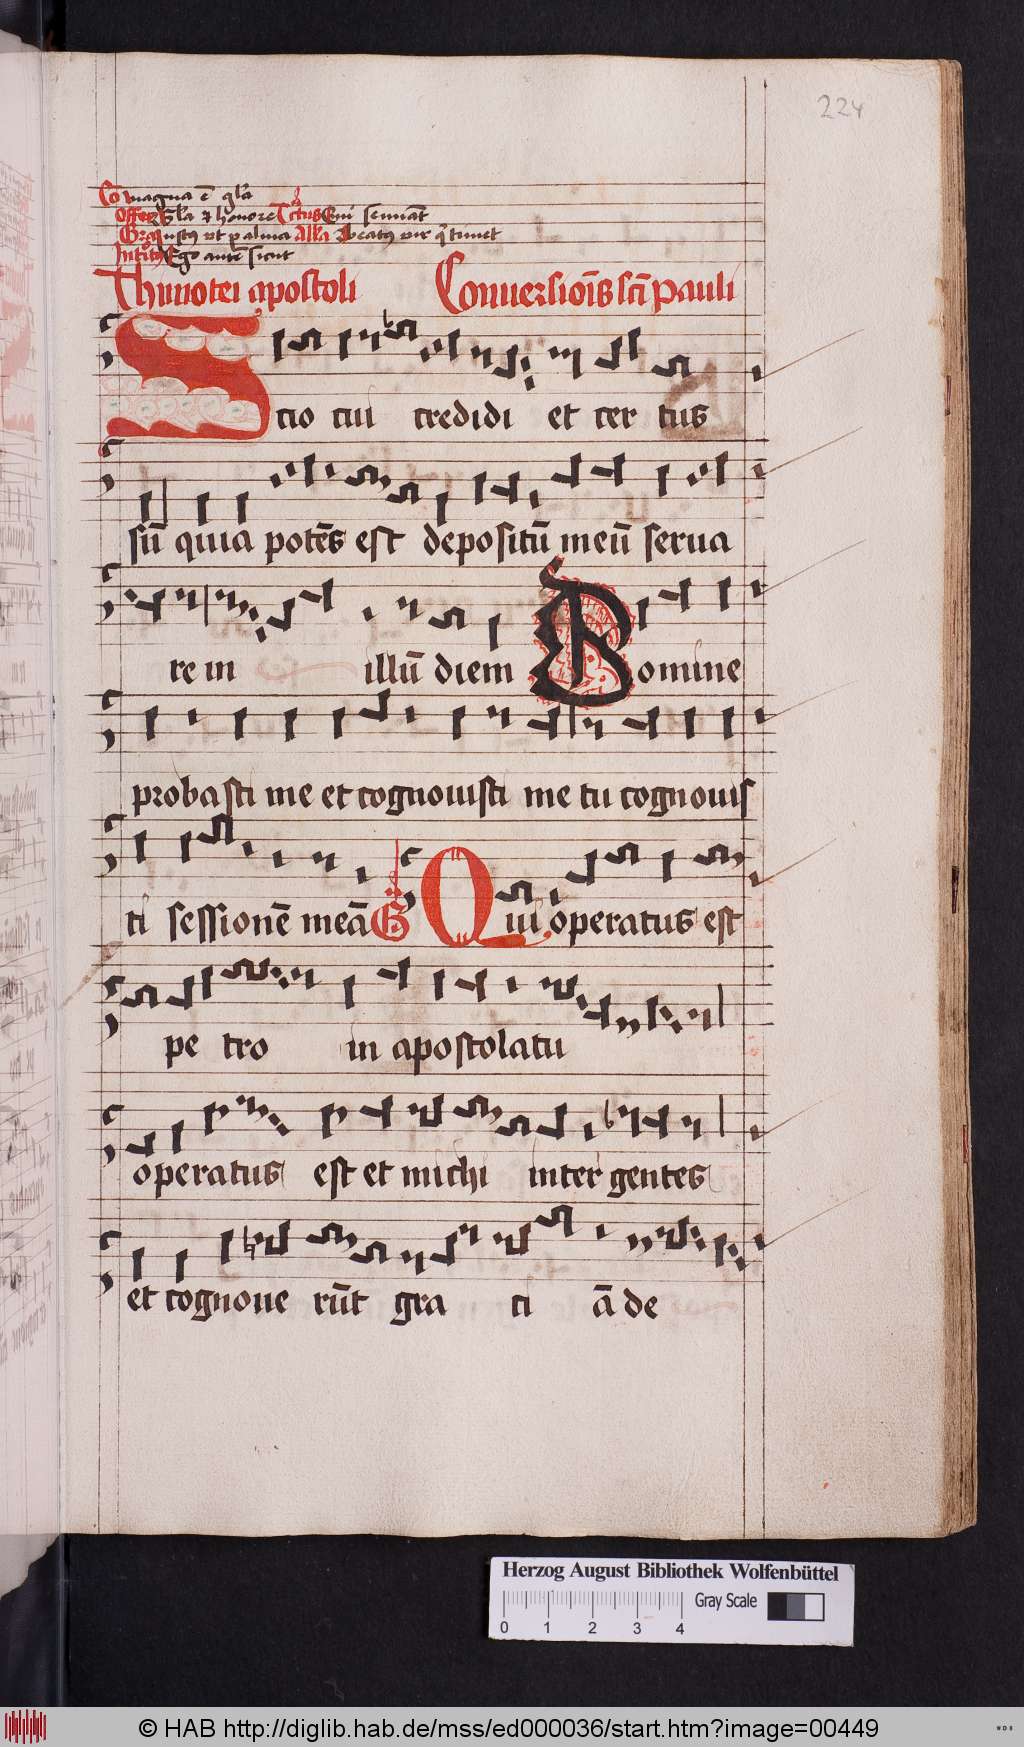 224
Cō magna ē gl̄a
Offer Gl̄a ⁊ honore Tctus Qui semināt
Gr Iustꝰ vt palma All̄a Beatꝰ vir q̄ timet
Intitꝰ Ego autē sicut
Thimotei apostoli Conuersiōis sc̄i pauli
Scio cui credidi et cer tus
sū quia potēs est depositū meū serua
re in illū diem Domine
probasti me et cognouisti me tu cognouis
ti sessionē meā G Qui operatus est
pe tro in apostolatu
operatus est et michi inter gentes
et cognoue rūt gra ti ā de
Herzog August Bibliothek Wolfenbüttel
Gray Scale
0 1 2 3 4
© HAB http://diglib.hab.de/mss/ed000036/start.htm?image=00449